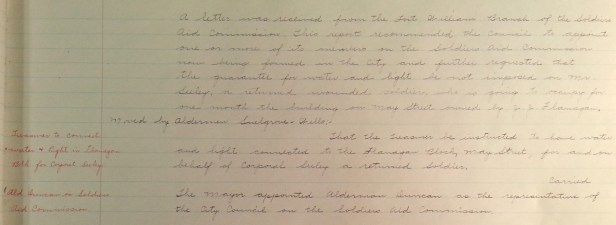 A letter was received from the Fort William Branch of the Soldiers
Aid Commission. This report recommended the Council to appoint
one or more of its members on the Soldiers Aid Commission
now being formed in the City and further requested that
the guarantee for water and light be not imposed on Mr.
Seeley, a returned wounded soldier, who is going to occupy for
one month the building on May Street owned by J. J. Flanagan.
Moved by Alderman - Wells:-
Treasurer to connect
water & light in Flanagan
Blk for Corporal Seeley
That the Treasurer be instructed to have water
and light connected to the Flanagan Block, May Street, for and on
behalf of Corporal Seeley a returned soldier.
Carried
Ald Duncan on Soldiers
Aid Commission.
The Mayor appointed Alderman Duncan as the representative of
the City Council on the Soldiers Aid Commission